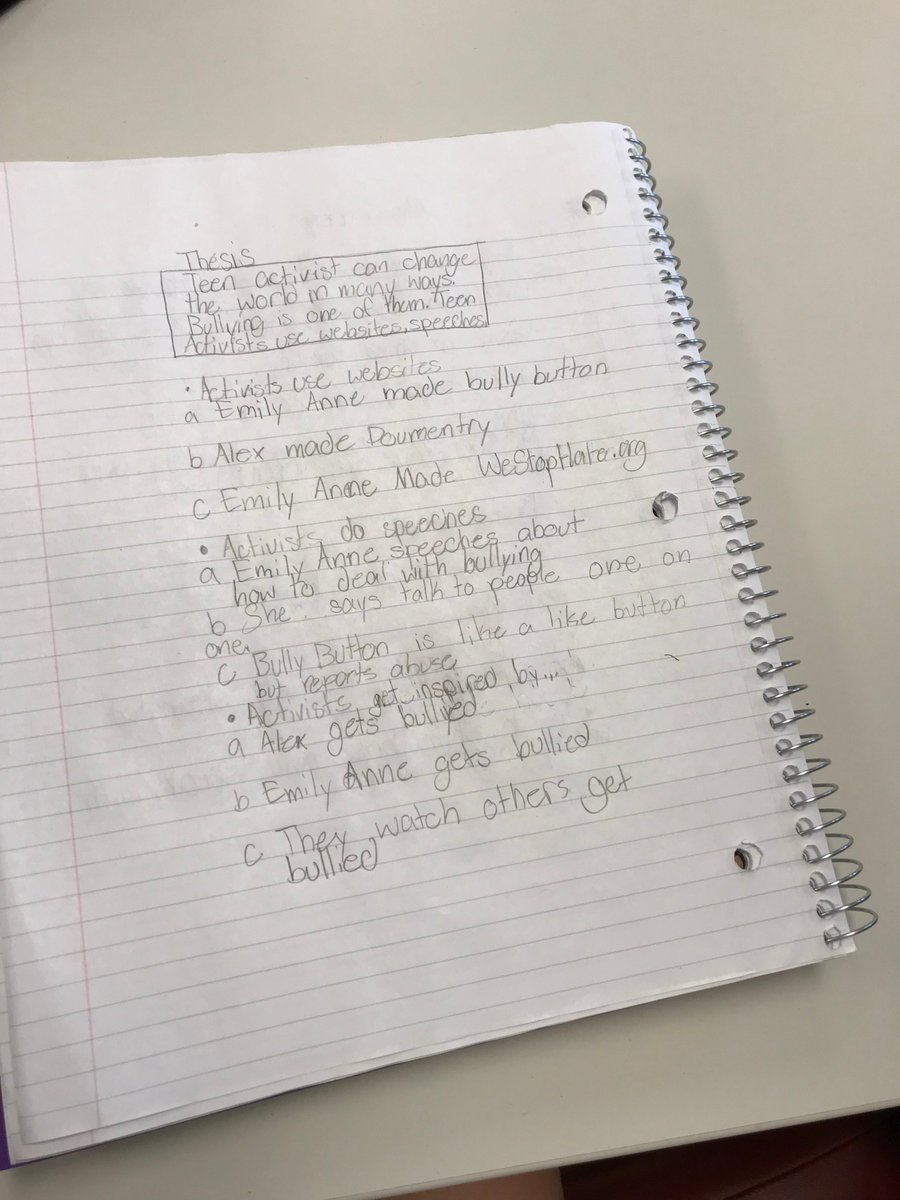 Thesis
Teen activist can change
the world in many ways.
Bullying is one of them. Teen
Activists use websites, speeches
• Activists use websites
a Emily Anne made bully button
b Alex made Doumentry
c Emily Anne Made WeStopHate.org
• Activists do speeches
a Emily Anne speeches about
how to deal with bullying
b She says talk to people one on
one.
C Bully Button is like a like button
but reports abuse
• Activists get inspired by...
a Alex gets bullyed
b Emily Anne gets bullied
C They watch others get
bullied